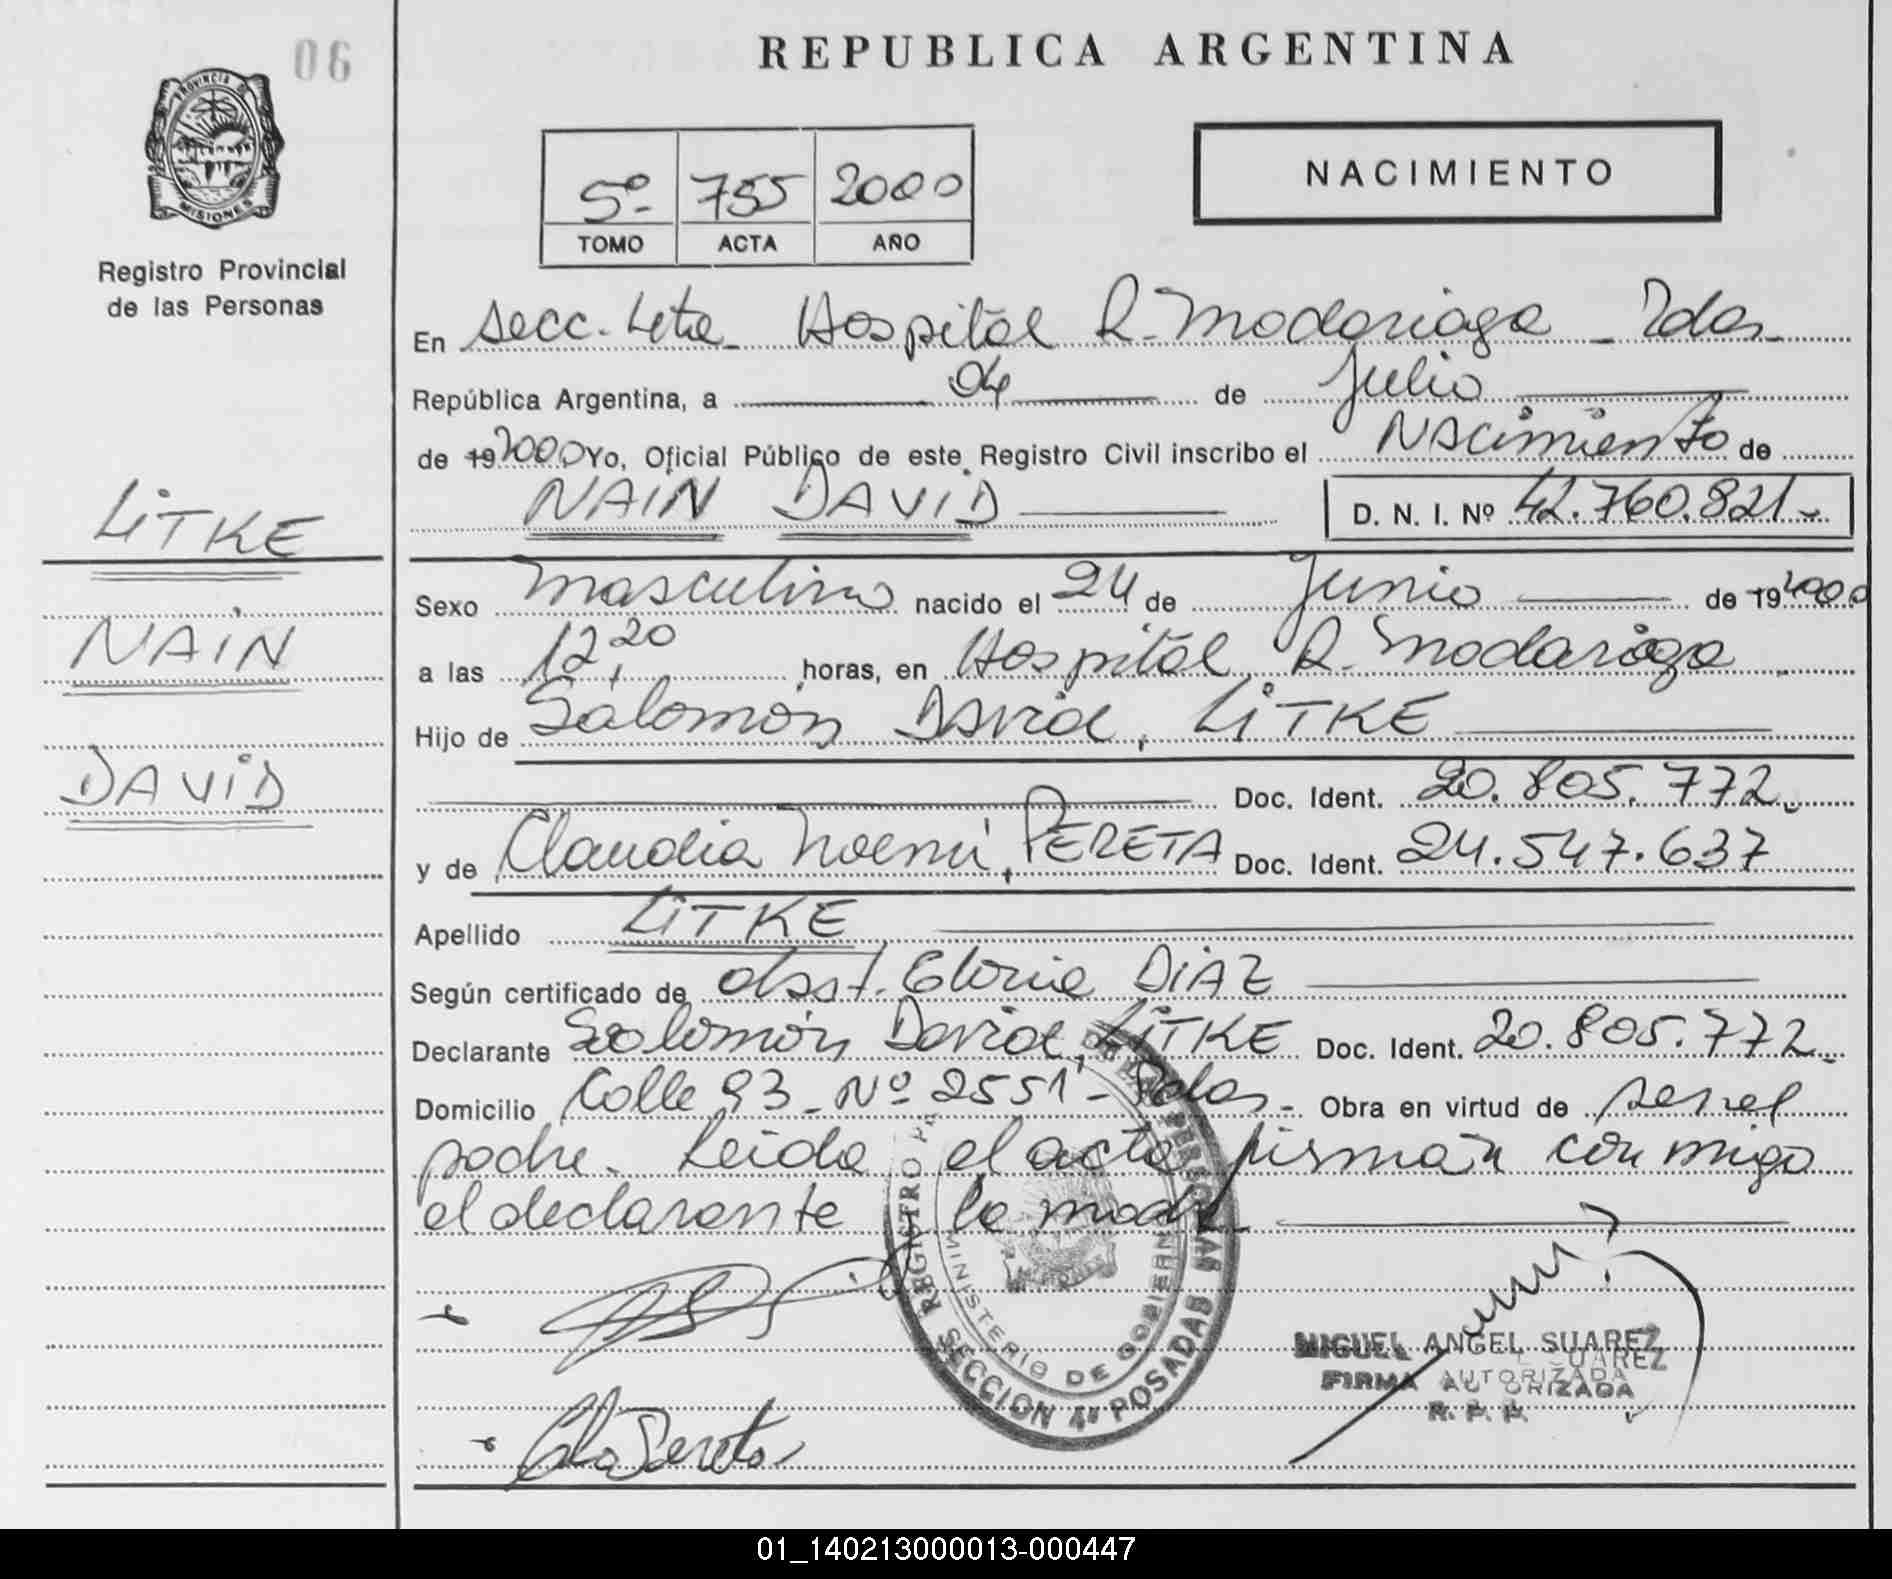 06
REPUBLICA ARGENTINA
PROVINCIA DE
MISIONES
Registro Provincial
de las Personas
5º 755 2000
TOMO ACTA AÑO
NACIMIENTO
En Secc. 4ta Hospital R. Madariaga - Pdas.
República Argentina, a 04 de Julio
de 19 2000 Yo, Oficial Público de este Registro Civil inscribo el Nacimiento de
NAIN DAVID D. N. I. Nº 42.760.821.-
LITKE
NAIN
DAVID
Sexo Masculino nacido el 24 de Junio de 19 2000
a las 12,20 horas, en Hospital R. Madariaga
Hijo de Salomón David, LITKE
Doc. Ident. 20.805.772.
y de Claudia Noemí, PERETA Doc. Ident. 24.547.637
Apellido LITKE
Según certificado de obst. Gloria DIAZ
Declarante Salomón David, LITKE Doc. Ident. 20.805.772.
Domicilio Calle 93 - Nº 2551 - Pdas. - Obra en virtud de ser el
padre. Leida el acta firman conmigo
el declarante la madre
REGISTRO DE LAS PERSONAS
MINISTERIO DE GOBIERNO
SECCION 4ª POSADAS
MIGUEL ANGEL SUAREZ
FIRMA AUTORIZADA
R. P. P.
Cla Pereta
01_140213000013-000447